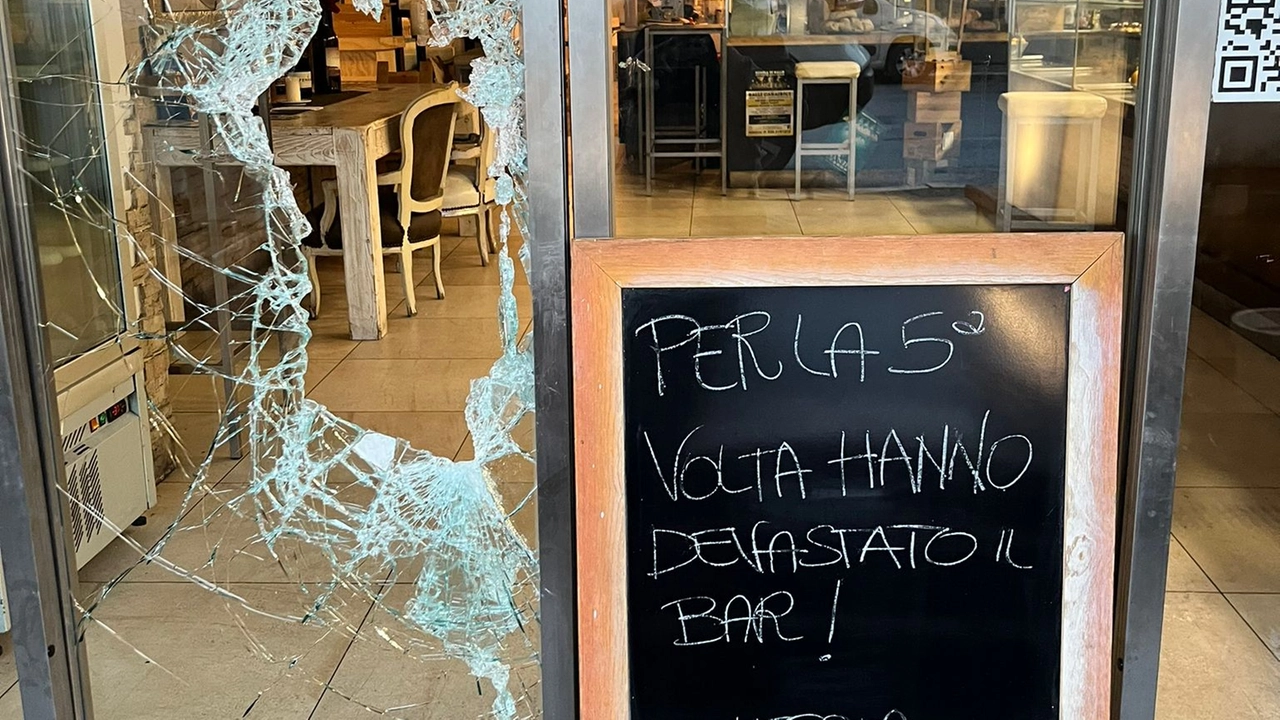 PER LA 5ª
VOLTA HANNO
DEVASTATO IL
BAR!